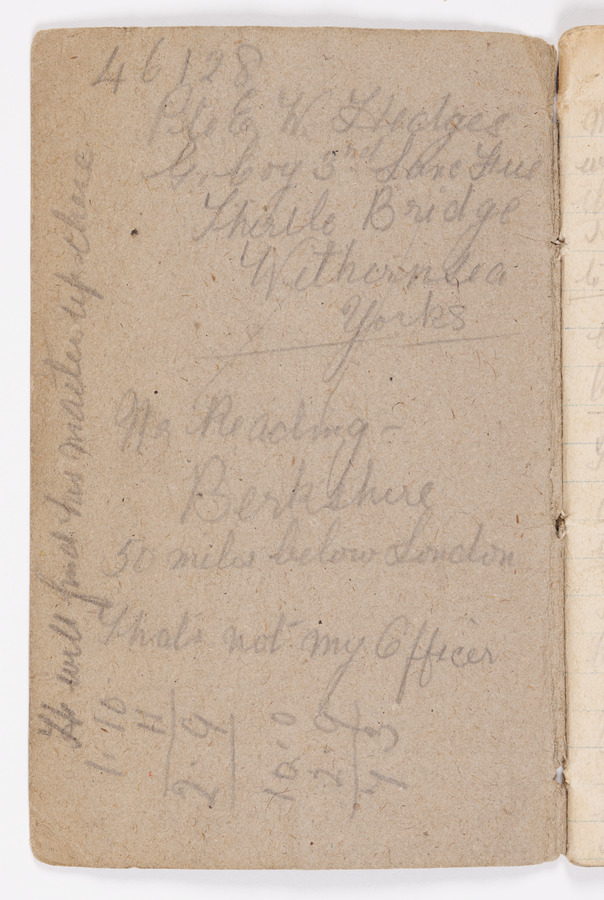 46128
Pte E. W. Hedges
G. Coy 3rd Lanc Fus
Thirtle Bridge
Withernsea
Yorks
Nr Reading -
Berkshire
50 miles below London
That's not my Officer
He will find his master up there
1.10
11
2.9
10.0
2.9
7 3